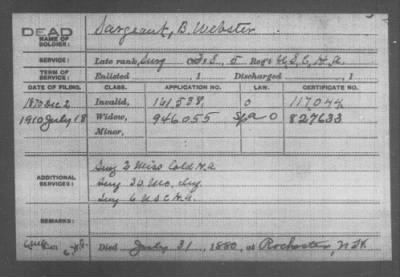 DEAD
NAME OF SOLDIER: Sargeant, B. Webster
SERVICE: Late rank, Surg F&S, 5 Reg't U.S.C.H.A.
TERM OF SERVICE: Enlisted , 1 Discharged , 1
DATE OF FILING. CLASS. APPLICATION NO. LAW. CERTIFICATE NO.
1870 Dec 2 Invalid, 161.538 0 117.044
1910 July 18 Widow, 946055 0 827633
Minor,
ADDITIONAL SERVICES:
Surg 3 Miss Cold H.A
Surg 30 Mo. Inf.
Surg 6 U S C H.A.
REMARKS:
Died July 31, 1880, at Rochester, N.H.